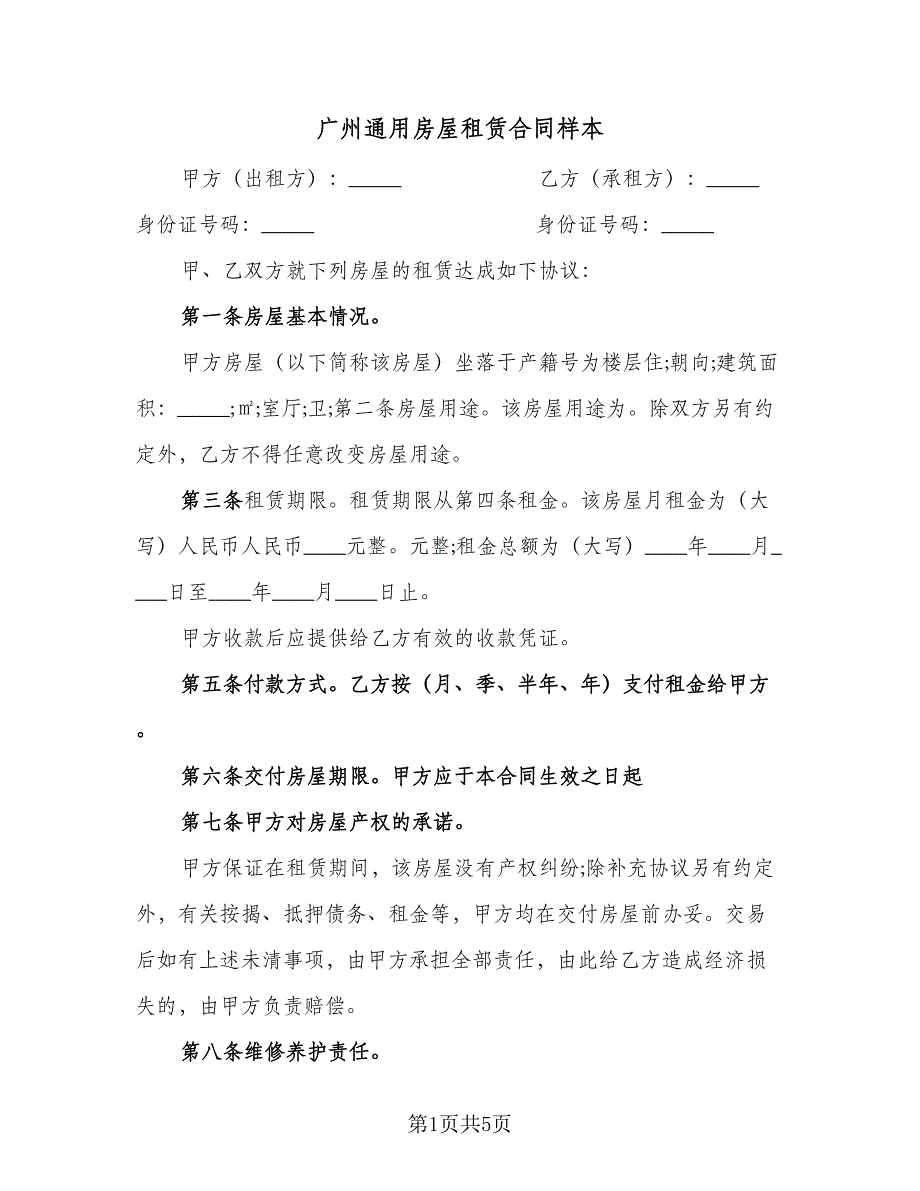 广州通用房屋租赁合同样本
甲方（出租方）：_____ 乙方（承租方）：_____
身份证号码：_____ 身份证号码：_____
甲、乙双方就下列房屋的租赁达成如下协议：
第一条房屋基本情况。
甲方房屋（以下简称该房屋）坐落于产籍号为楼层住;朝向;建筑面
积：_____;㎡;室厅;卫;第二条房屋用途。该房屋用途为。除双方另有约
定外，乙方不得任意改变房屋用途。
第三条租赁期限。租赁期限从第四条租金。该房屋月租金为（大
写）人民币人民币____元整。元整;租金总额为（大写）____年____月_
___日至____年____月____日止。
甲方收款后应提供给乙方有效的收款凭证。
第五条付款方式。乙方按（月、季、半年、年）支付租金给甲方
。
第六条交付房屋期限。甲方应于本合同生效之日起
第七条甲方对房屋产权的承诺。
甲方保证在租赁期间，该房屋没有产权纠纷;除补充协议另有约定
外，有关按揭、抵押债务、租金等，甲方均在交付房屋前办妥。交易
后如有上述未清事项，由甲方承担全部责任，由此给乙方造成经济损
失的，由甲方负责赔偿。
第八条维修养护责任。
第1页共5页